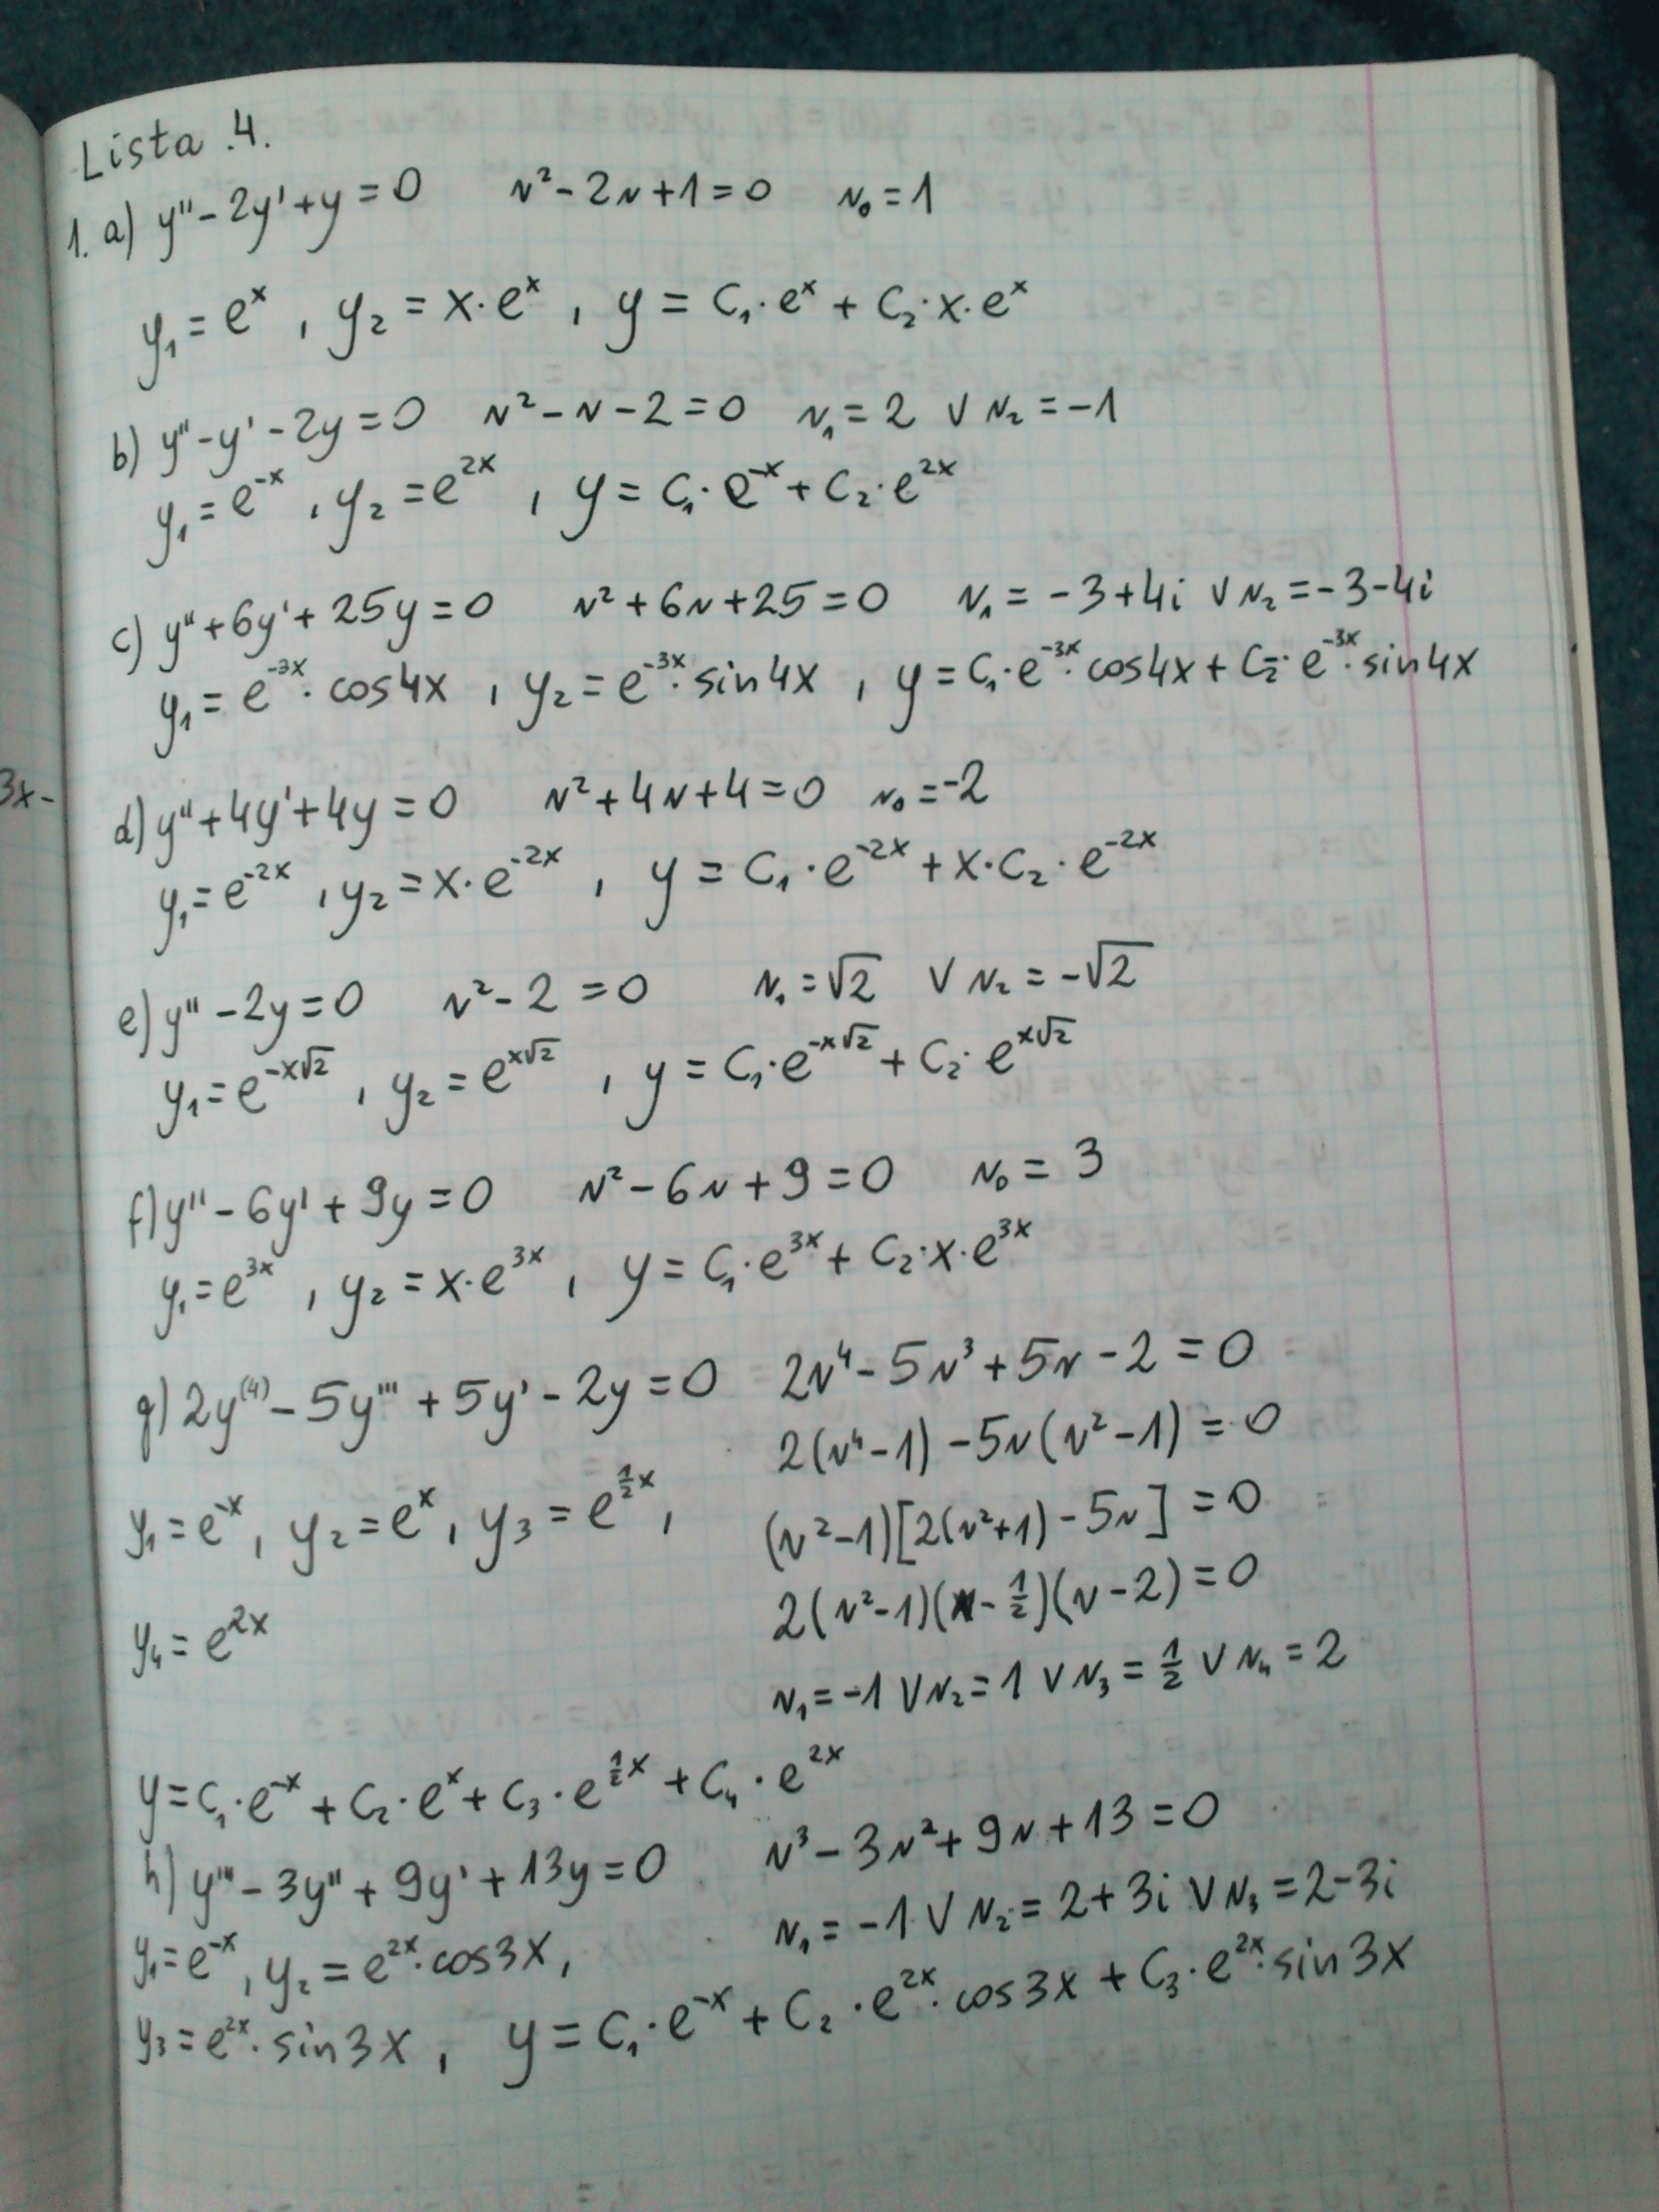 Lista .4.
1. a) y'' - 2y' + y = 0    r² - 2r + 1 = 0    r₀ = 1
y₁ = eˣ , y₂ = x·eˣ , y = C₁·eˣ + C₂·x·eˣ
b) y'' - y' - 2y = 0    r² - r - 2 = 0    r₁ = 2 ∨ r₂ = -1
y₁ = e⁻ˣ , y₂ = e²ˣ , y = C₁·e⁻ˣ + C₂·e²ˣ
c) y'' + 6y' + 25y = 0    r² + 6r + 25 = 0    r₁ = -3+4i ∨ r₂ = -3-4i
y₁ = e⁻³ˣ·cos4x , y₂ = e⁻³ˣ·sin4x , y = C₁·e⁻³ˣ·cos4x + C₂·e⁻³ˣ·sin4x
3x-
d) y'' + 4y' + 4y = 0    r² + 4r + 4 = 0    r₀ = -2
y₁ = e⁻²ˣ , y₂ = x·e⁻²ˣ , y = C₁·e⁻²ˣ + x·C₂·e⁻²ˣ
e) y'' - 2y = 0    r² - 2 = 0    r₁ = √2 ∨ r₂ = -√2
y₁ = e^(-x√2) , y₂ = e^(x√2) , y = C₁·e^(-x√2) + C₂·e^(x√2)
f) y'' - 6y' + 9y = 0    r² - 6r + 9 = 0    r₀ = 3
y₁ = e³ˣ , y₂ = x·e³ˣ , y = C₁·e³ˣ + C₂·x·e³ˣ
g) 2y⁽⁴⁾ - 5y''' + 5y' - 2y = 0    2r⁴ - 5r³ + 5r - 2 = 0
2(r⁴-1) - 5r(r²-1) = 0
y₁ = e⁻ˣ , y₂ = eˣ , y₃ = e^(½x) ,    (r²-1)[2(r²+1) - 5r] = 0
2(r²-1)(r-½)(r-2) = 0
y₄ = e²ˣ
r₁ = -1 ∨ r₂ = 1 ∨ r₃ = ½ ∨ r₄ = 2
y = C₁·e⁻ˣ + C₂·eˣ + C₃·e^(½x) + C₄·e²ˣ
h) y''' - 3y'' + 9y' + 13y = 0    r³ - 3r² + 9r + 13 = 0
r₁ = -1 ∨ r₂ = 2+3i ∨ r₃ = 2-3i
y₁ = e⁻ˣ , y₂ = e²ˣ·cos3x ,
y₃ = e²ˣ·sin3x , y = C₁·e⁻ˣ + C₂·e²ˣ·cos3x + C₃·e²ˣ·sin3x